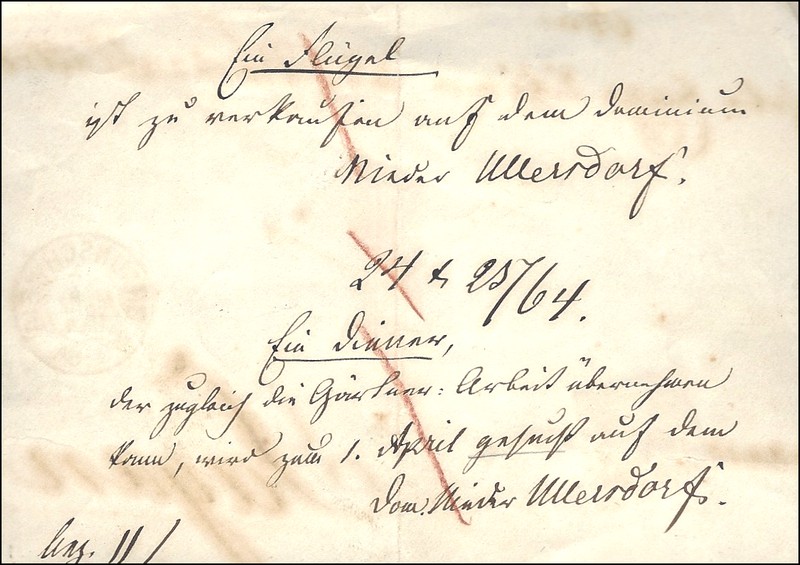 Ein Flügel
ist zu verkaufen auf dem Dominium
Nieder Ullersdorf.
24 & 25/64.
Ein Diener,
der zugleich die Gärtner: Arbeit übernehmen
kann, wird zum 1. April gesucht auf dem
Dom. Nieder Ullersdorf.